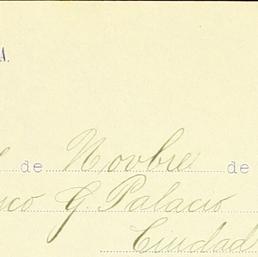 A.
de Novbre de
G. Palacio
Ciudad